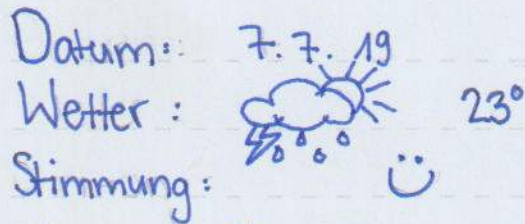 Datum: 7. 7. 19
Wetter: 23°
Stimmung: